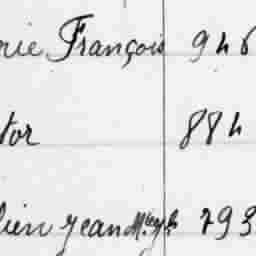 rie François 946
tor 884
lien Jean M. 793